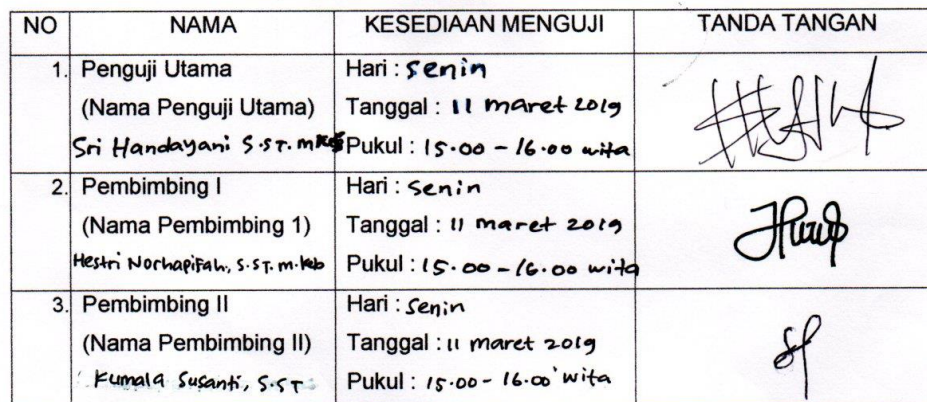 NO NAMA KESEDIAAN MENGUJI TANDA TANGAN
1. Penguji Utama
(Nama Penguji Utama)
Sri Handayani S.ST. M.Keb
Hari : Senin
Tanggal : 11 maret 2019
Pukul : 15.00 - 16.00 wita
2. Pembimbing I
(Nama Pembimbing 1)
Hestri Norhapifah, S.ST. M.Keb
Hari : Senin
Tanggal : 11 maret 2019
Pukul : 15.00 - 16.00 wita
3. Pembimbing II
(Nama Pembimbing II)
Kumala Susanti, S.ST
Hari : Senin
Tanggal : 11 maret 2019
Pukul : 15.00 - 16.00 wita